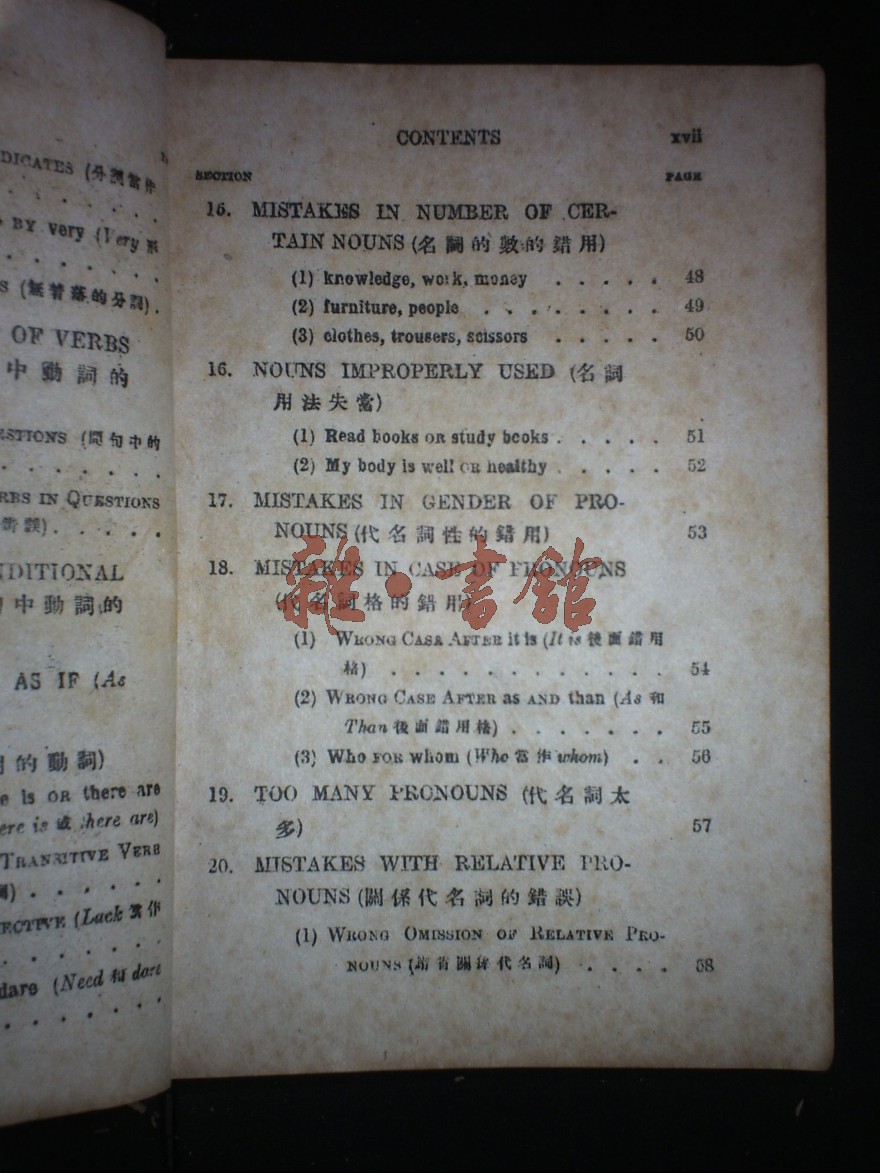 DICATES (分詞當作
BY very (Very
S (無着落的分詞).
OF VERBS
中動詞的
ESTIONS (問句中的
RBS IN QUESTIONS
NDITIONAL
中動詞的
AS IF (As
的動詞)
e is OR there are
ere is 或 there are)
TRANSITIVE VERB
ECTIVE (Lack 當作
dare (Need 和 dare
CONTENTS xvii
SECTION PAGE
15. MISTAKES IN NUMBER OF CER-
TAIN NOUNS (名詞的數的錯用)
(1) knowledge, work, money . . . . . 48
(2) furniture, people . . . . . . . . 49
(3) clothes, trousers, scissors . . . . . 50
16. NOUNS IMPROPERLY USED (名詞
用法失當)
(1) Read books OR study books . . . . . 51
(2) My body is well OR healthy . . . . 52
17. MISTAKES IN GENDER OF PRO-
NOUNS (代名詞性的錯用) 53
18. MISTAKES IN CASE OF PRONOUNS
(代名詞格的錯用)
雜·書館
(1) WRONG CASE AFTER it is (It is 後面錯用
格) . . . . . . . . . . . 54
(2) WRONG CASE AFTER as AND than (As 和
Than 後面錯用格) . . . . . . . 55
(3) Who FOR whom (Who 當作 whom) . . 56
19. TOO MANY PRONOUNS (代名詞太
多) 57
20. MISTAKES WITH RELATIVE PRO-
NOUNS (關係代名詞的錯誤)
(1) WRONG OMISSION OF RELATIVE PRO-
NOUNS (錯省關係代名詞) . . . . 58